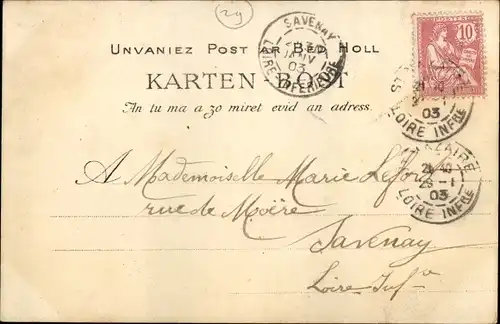 29
SAVENAY
JANV
03
LOIRE INFERIEURE
UNVANIEZ POST AR BED HOLL
KARTEN-BOST
An tu ma a zo miret evid an adress.
POSTES
10
03
LOIRE INFRE
NAZAIRE
29 - 1
03
LOIRE INFRE
A Mademoiselle Marie Lefort
rue de Moëre
Savenay
Loire Infre